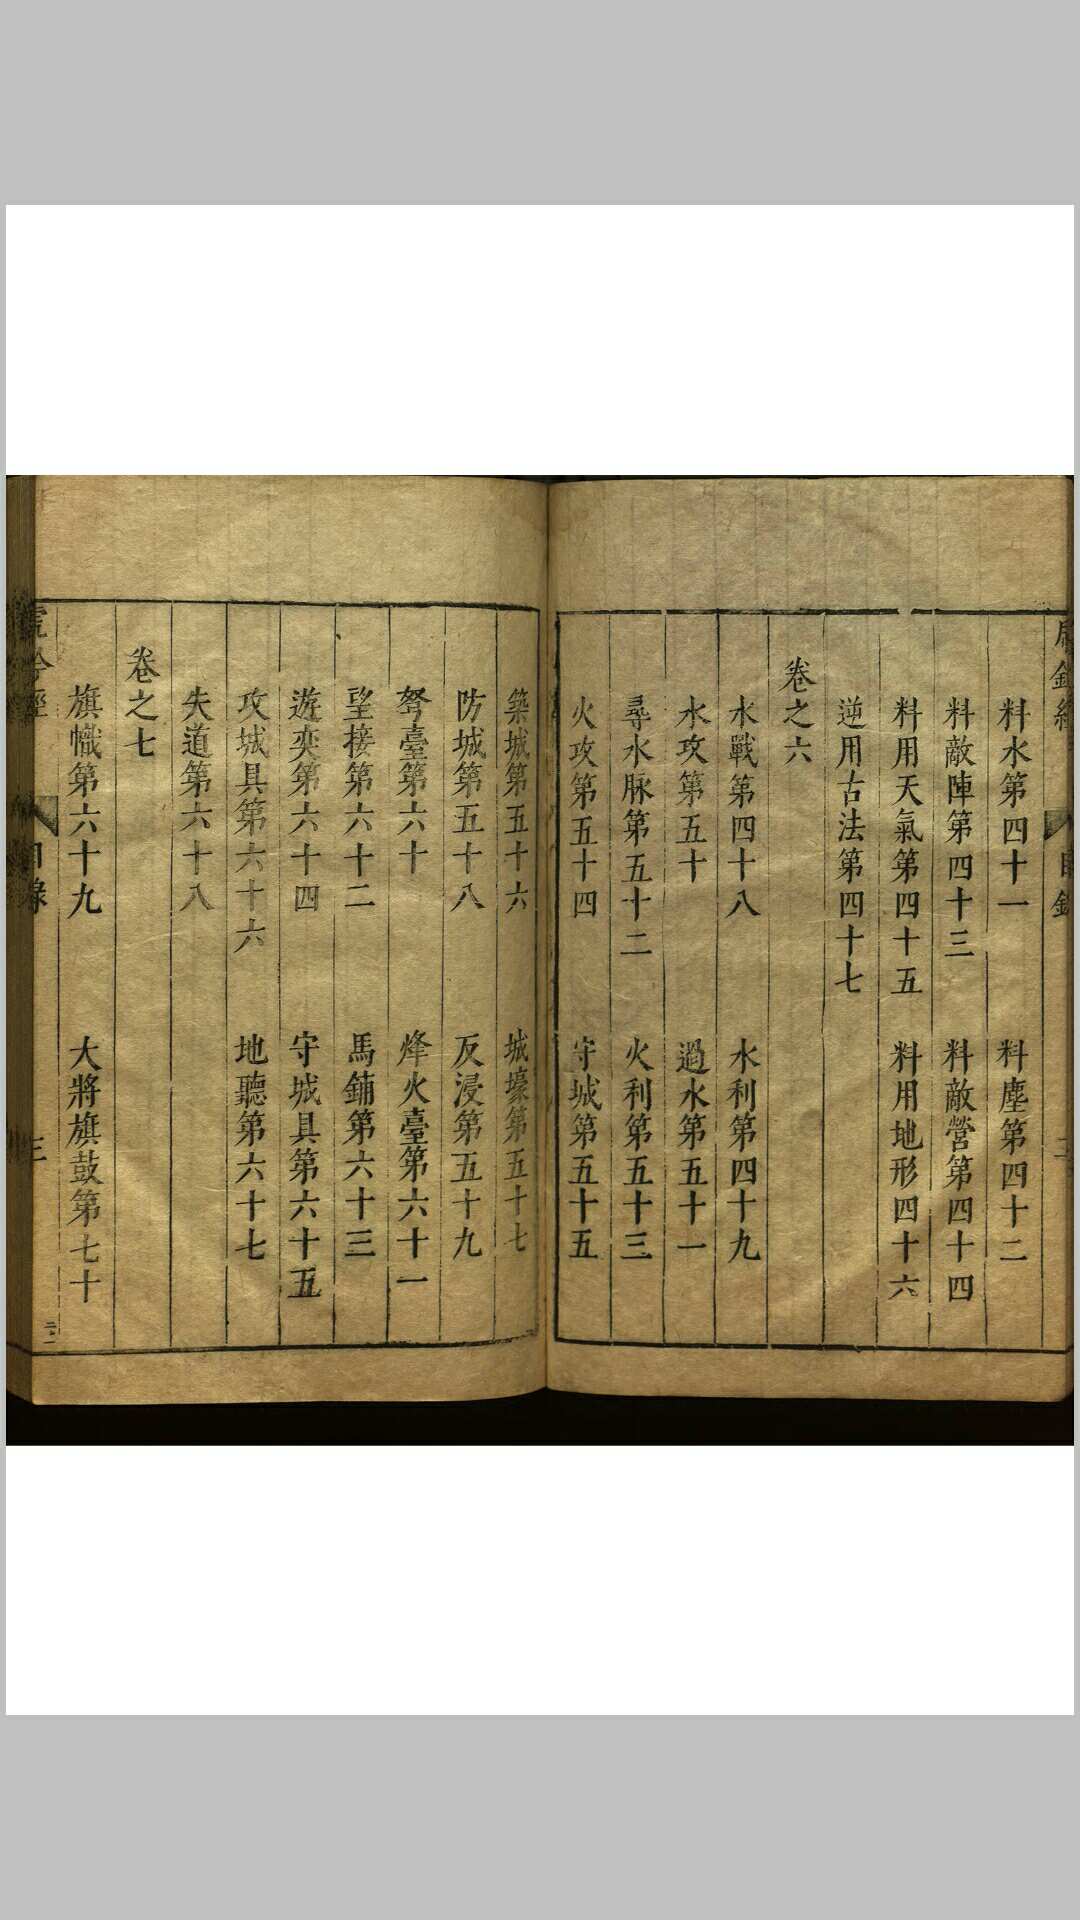 料水第四十一 料塵第四十二
料敵陣第四十三 料敵營第四十四
料用天氣第四十五 料用地形四十六
逆用古法第四十七
卷之六
水戰第四十八 水利第四十九
水攻第五十 過水第五十一
尋水脉第五十二 火利第五十三
火攻第五十四 守城第五十五
築城第五十六 城壕第五十七
防城第五十八 反浸第五十九
弩臺第六十 烽火臺第六十一
望接第六十二 馬鋪第六十三
遊奕第六十四 守城具第六十五
攻城具第六十六 地聽第六十七
失道第六十八
卷之七
旗幟第六十九 大將旗鼓第七十
目錄 三